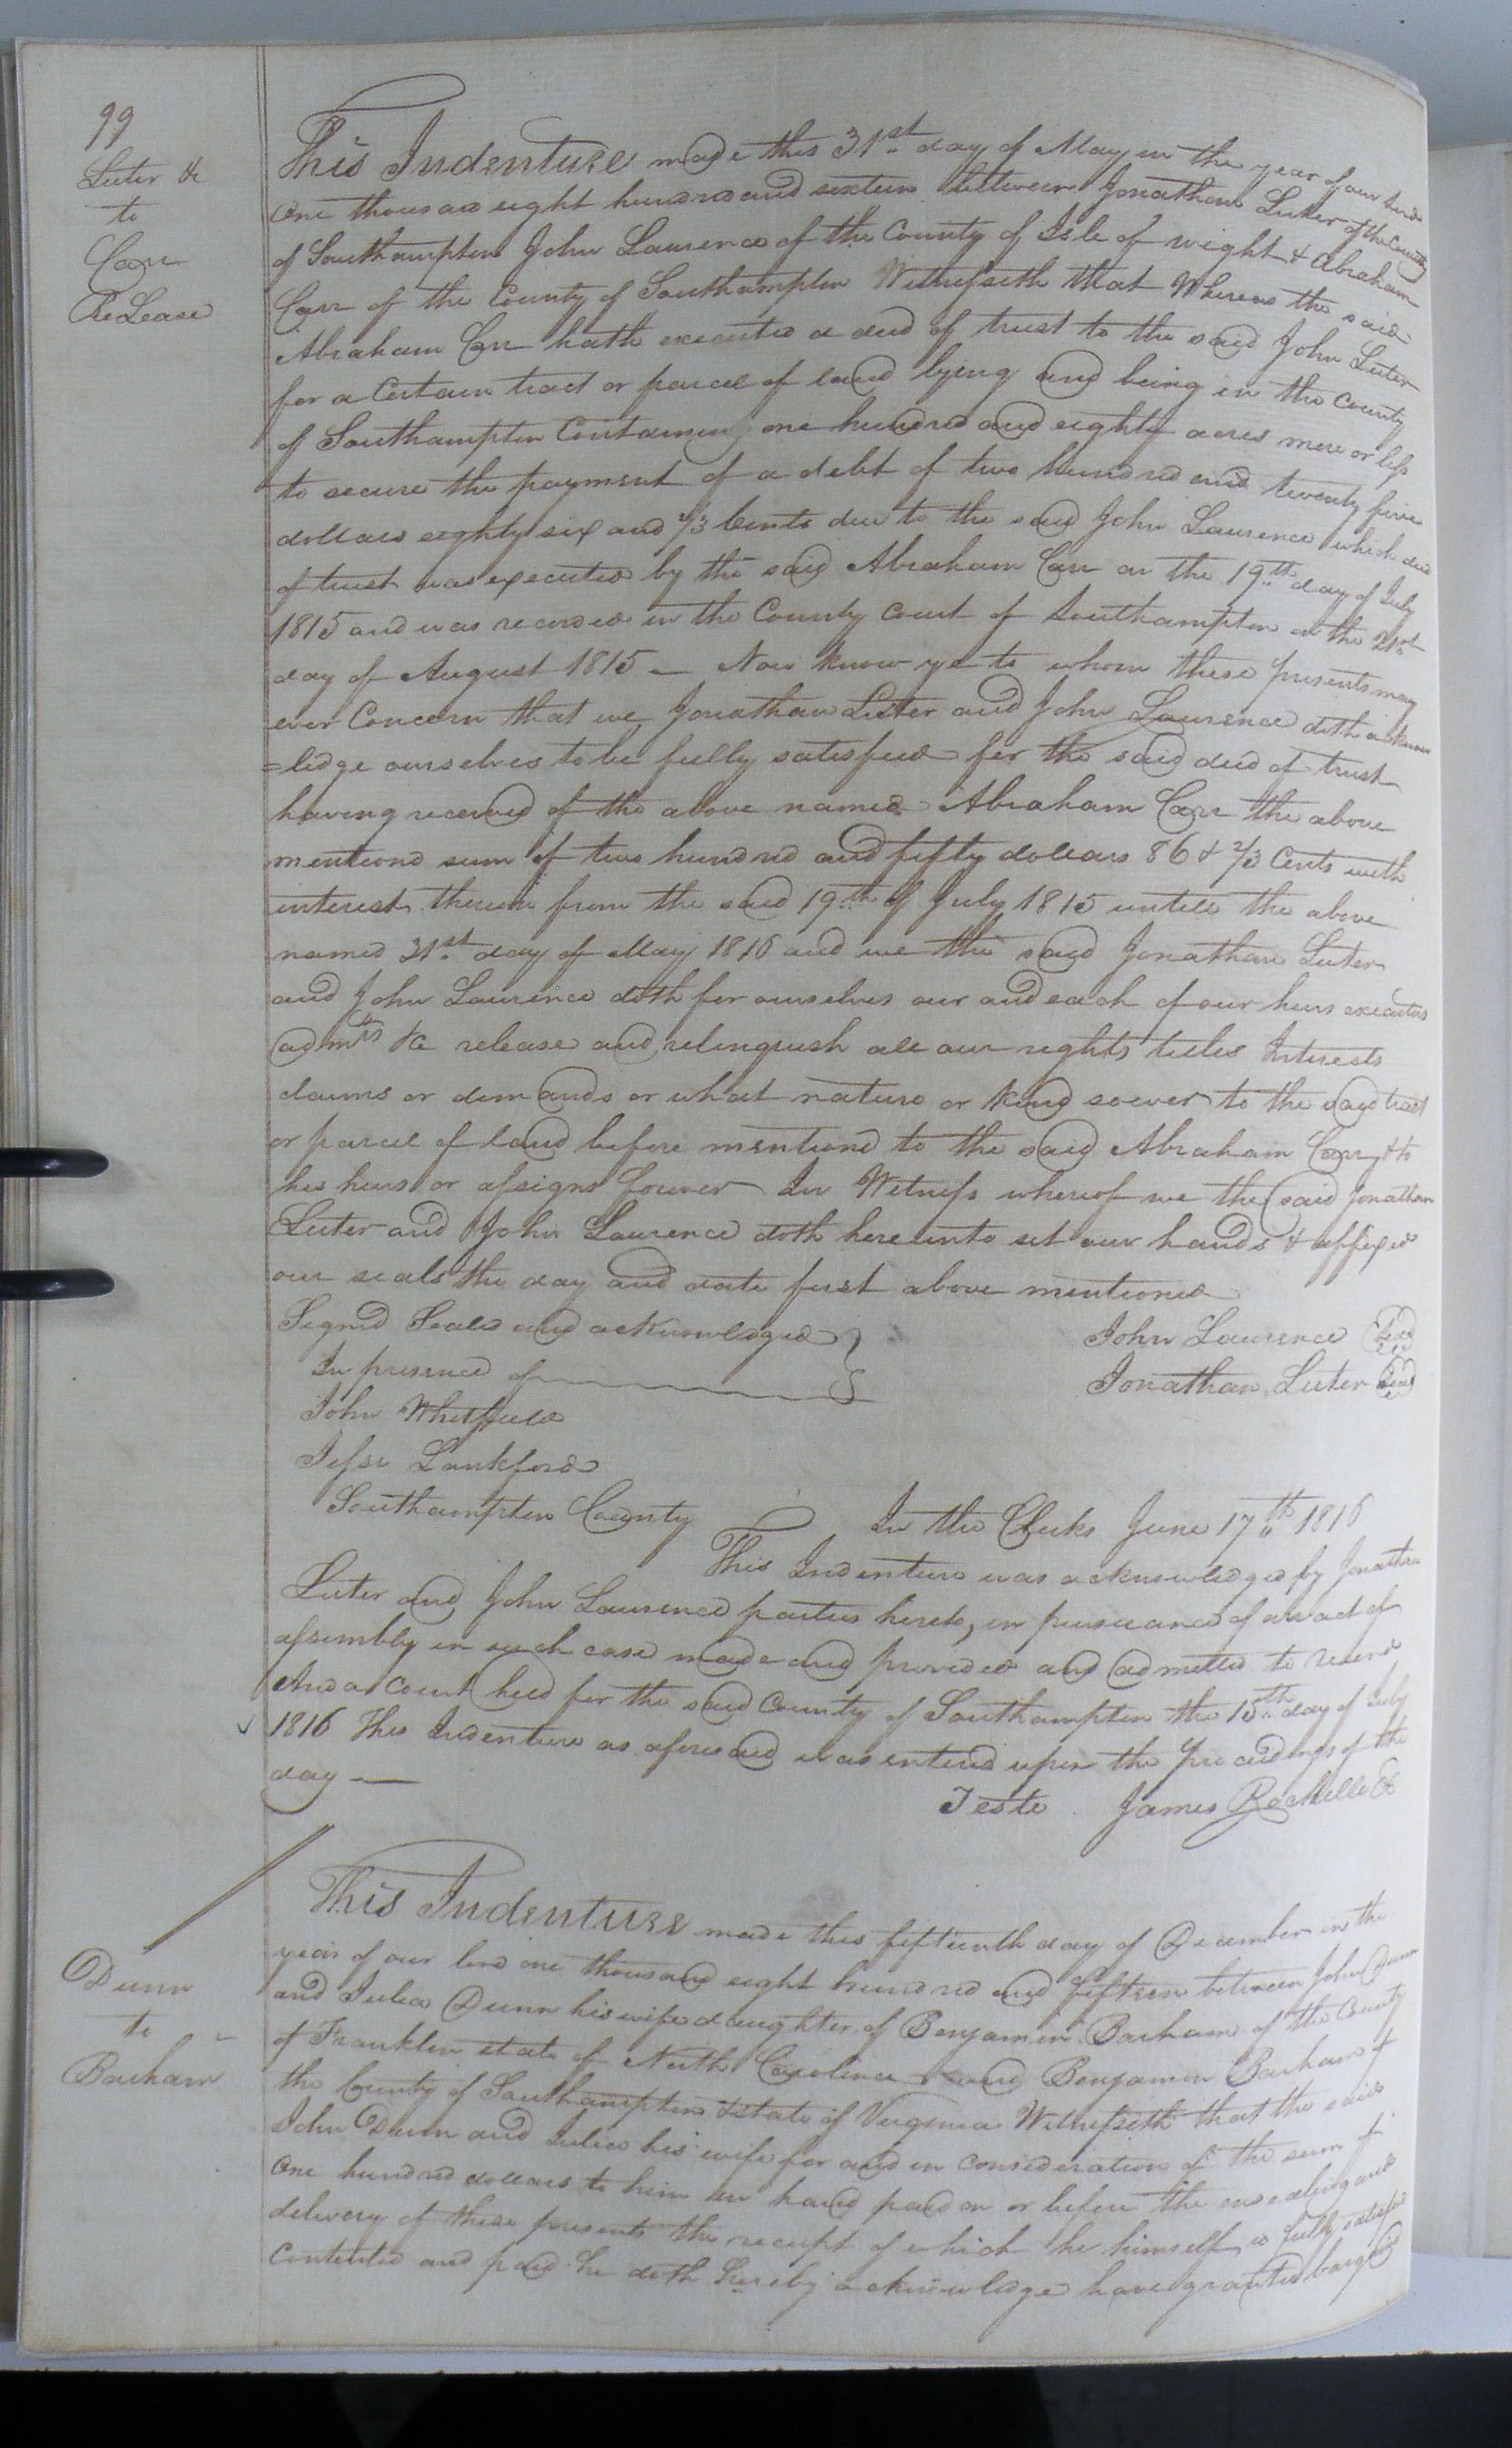 99
Luter &c
to
Carr
ReLease
This Indenture made this 31st day of May in the year of our Lord
One thousand eight hundred and sixteen between Jonathan Luter of the County
of Southampton John Laurence of the County of Isle of wight & Abraham
Carr of the County of Southampton Witnesseth that Whereas the said
Abraham Carr hath executed a deed of trust to the said John Luter
for a Certain tract or parcel of land lying and being in the County
of Southampton Containing one hundred and eighty acres more or less
to secure the payment of a debt of two hundred and twenty five
dollars eighty six and 2/3 Cents due to the said John Laurence which deed
of trust was executed by the said Abraham Carr on the 19th day of July
1815 and was recorded in the County Court of Southampton on the 21st
day of August 1815 — Now know ye to whom these presents may
ever Concern that we Jonathan Luter and John Laurence doth acknow
=ledge ourselves to be fully satisfied for the said deed of trust
having received of the above named Abraham Carr the above
mentiond sum of two hundred and fifty dollars 86 & 2/3 Cents with
interest thereon from the said 19th of July 1815 untill the above
named 31st day of May 1816 and we the said Jonathan Luter
and John Laurence doth for ourselves our and each of our heirs executors
admrs &c release and relinquish all our rights titles Interests
claims or demands or what nature or kind soever to the said tract
or parcel of land before mentiond to the said Abraham Carr & to
his heirs or assigns forever In Witness whereof we the said Jonathan
Luter and John Laurence doth hereunto set our hands & affixed
our seals the day and date first above mentioned
Signd Seald and acknowledged
John Laurence Seal
In presence of
Jonathan Luter Seal
John Whitfield
Jesse Lankford
Southampton County In the Clerks June 17th 1816
This Indenture was acknowledged by Jonathan
Luter and John Laurence parties hereto, in pursuance of an act of
assembly in such case made and provided and admitted to record
And a Court held for the said County of Southampton the 15th day of July
1816 This Indenture as aforesaid was enterd upon the proceedings of the
day —
Teste James Rochelle Cl
Dunn
to
Barham
This Indenture made this fifteenth day of December in the
year of our lord one thousand eight hundred and fifteen between John Dunn
and Julia Dunn his wife daughter of Benjamin Barham of the County
of Franklin state of North Carolina and Benjamin Barham of
the County of Southampton & state of Virginia Witnesseth that the said
John Dunn and Julia his wife for and in consideration of the sum of
One hundred dollars to him in hand paid on or before the ensealing and
delivery of these presents the receipt of which he himself is fully satisfied
Contented and paid he doth hereby acknowledge have granted bargaind